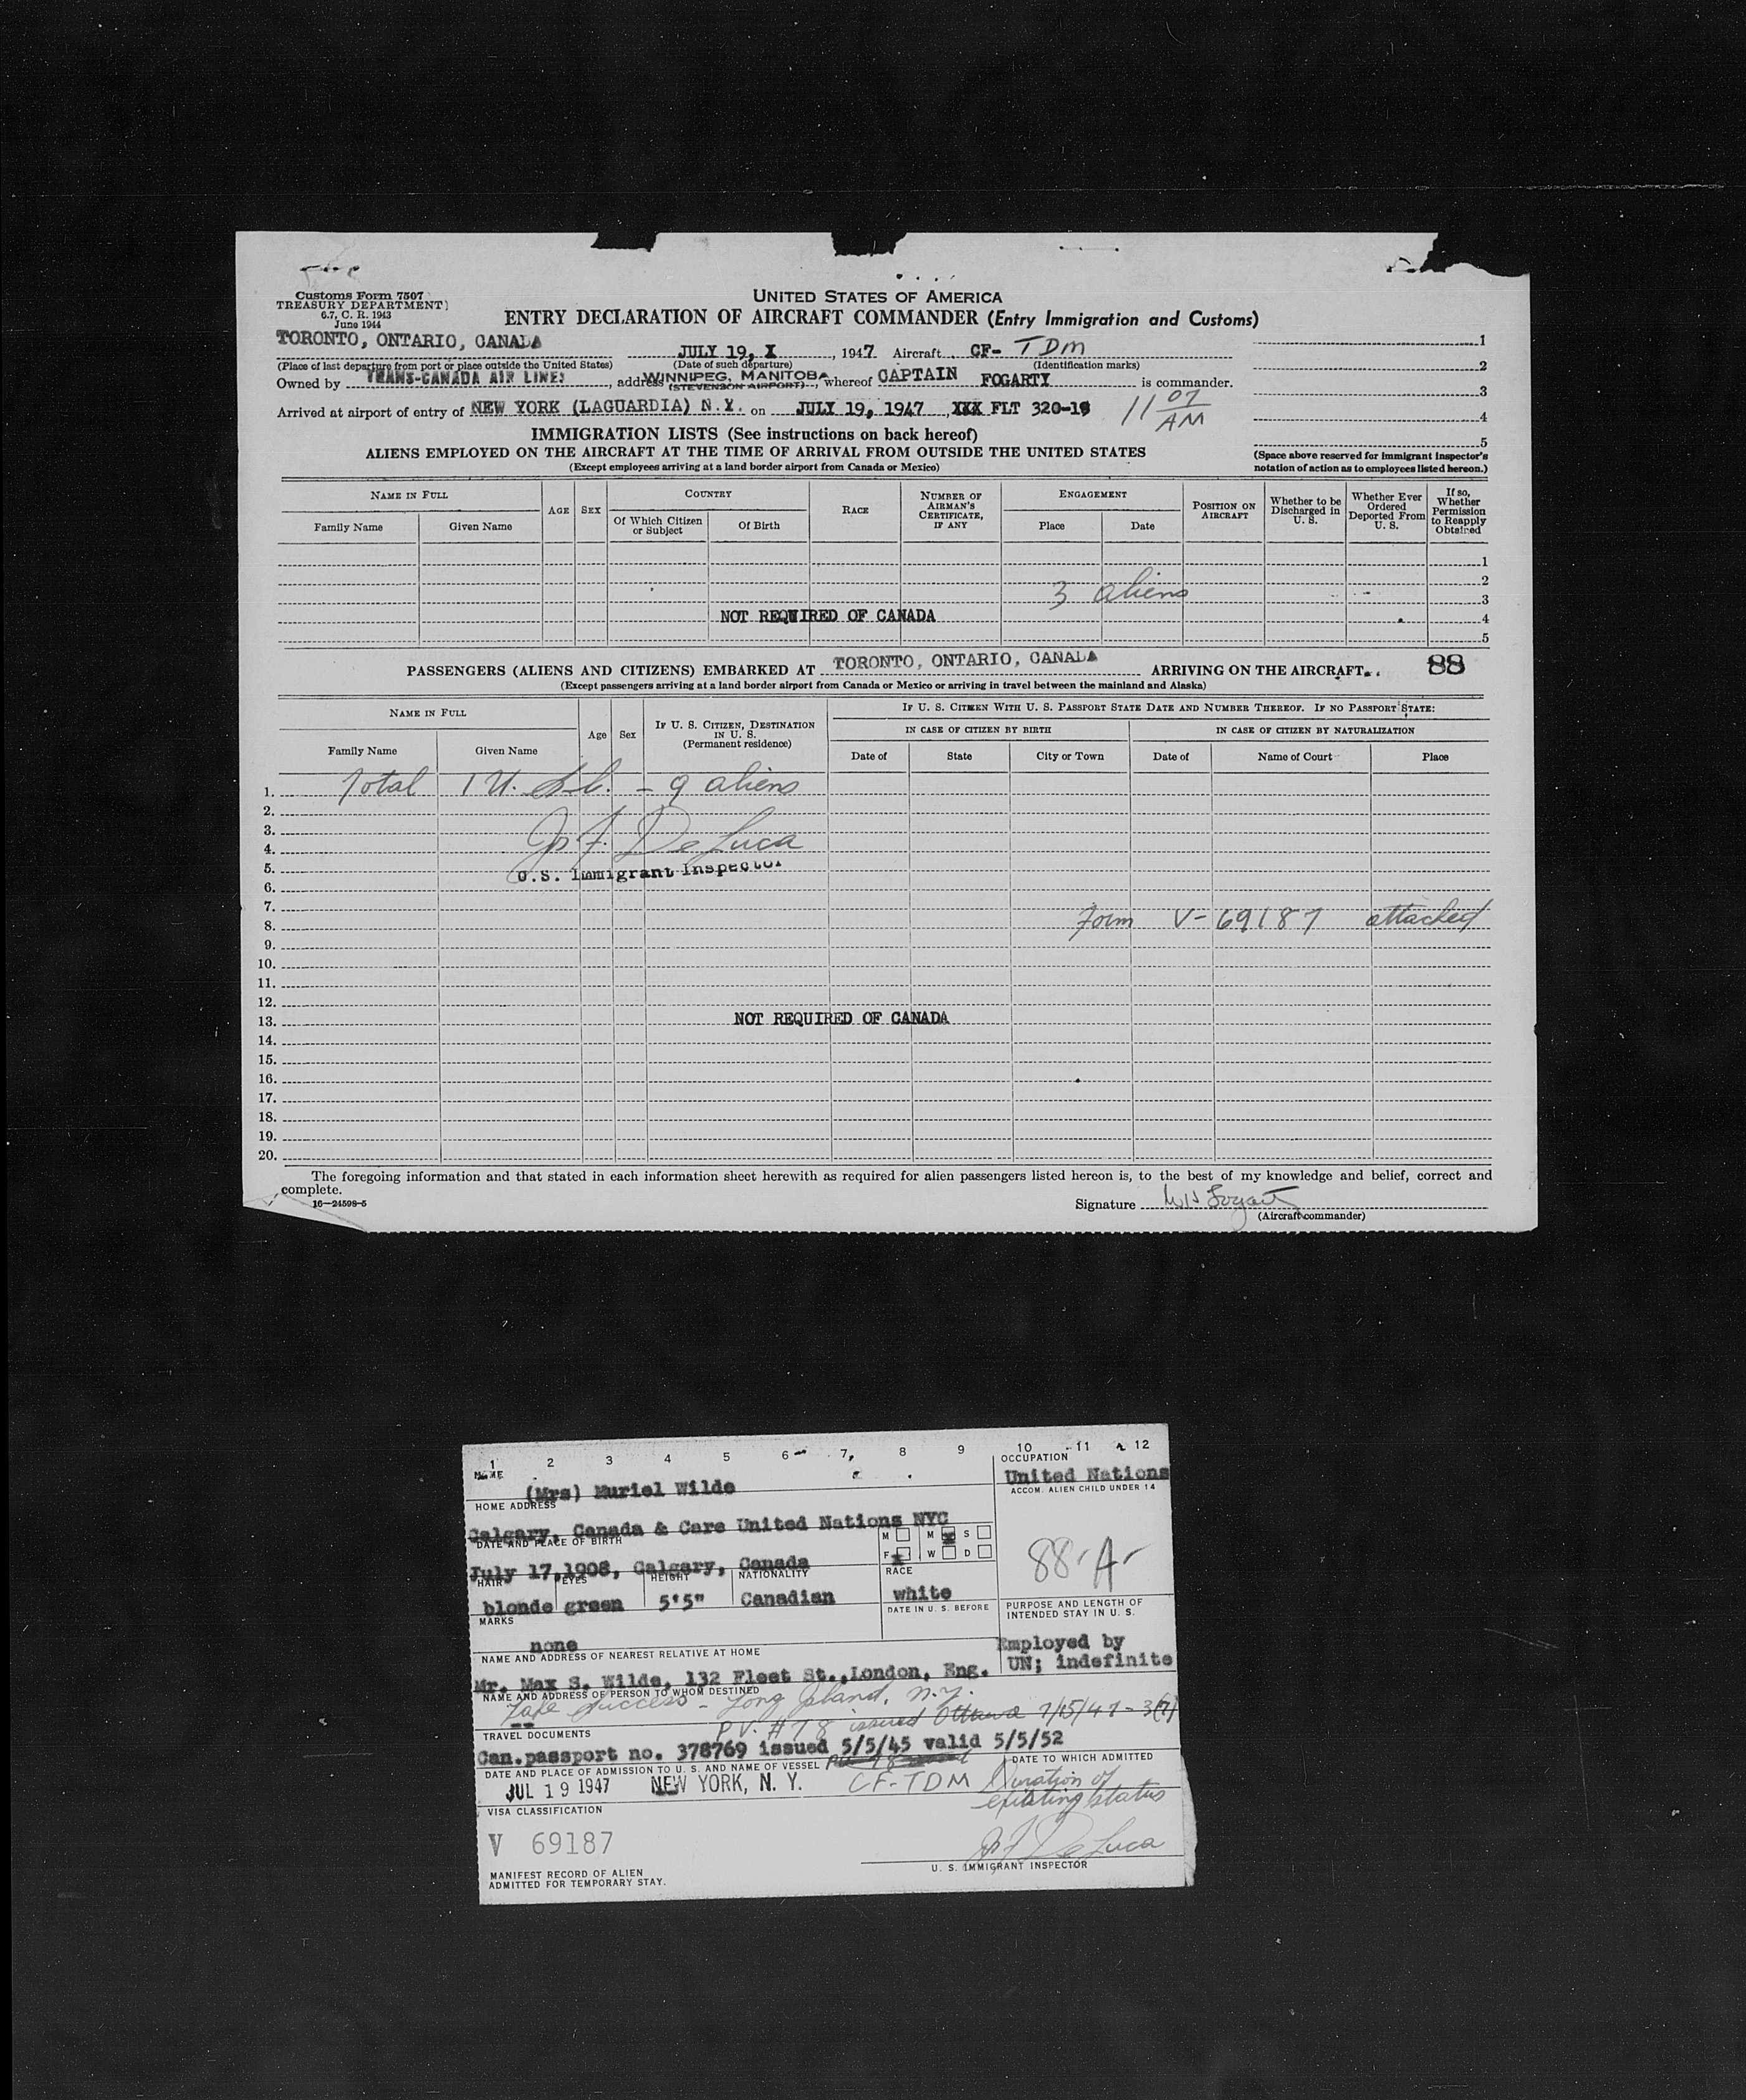 Customs Form 7507
TREASURY DEPARTMENT
6.7, C. R. 1943
June 1944
UNITED STATES OF AMERICA
ENTRY DECLARATION OF AIRCRAFT COMMANDER (Entry Immigration and Customs)
TORONTO, ONTARIO, CANADA JULY 19, X, 1947 Aircraft CF- TDM
(Place of last departure from port or place outside the United States) (Date of such departure) (Identification marks)
Owned by TRANS-CANADA AIR LINES, address WINNIPEG, MANITOBA (STEVENSON AIRPORT), whereof CAPTAIN FOGARTY is commander.
Arrived at airport of entry of NEW YORK (LAGUARDIA) N.Y. on JULY 19, 1947, XXX FLT 320-19 11 07 AM
1
2
3
4
5
(Space above reserved for immigrant inspector's notation of action as to employees listed hereon.)
IMMIGRATION LISTS (See instructions on back hereof)
ALIENS EMPLOYED ON THE AIRCRAFT AT THE TIME OF ARRIVAL FROM OUTSIDE THE UNITED STATES
(Except employees arriving at a land border airport from Canada or Mexico)
NAME IN FULL
Family Name Given Name
AGE SEX
COUNTRY
Of Which Citizen or Subject Of Birth
RACE
NUMBER OF AIRMAN'S CERTIFICATE, IF ANY
ENGAGEMENT
Place Date
POSITION ON AIRCRAFT
Whether to be Discharged in U. S.
Whether Ever Ordered Deported From U. S.
If so, Whether Permission to Reapply Obtained
1
2
3 aliens 3
NOT REQUIRED OF CANADA 4
5
PASSENGERS (ALIENS AND CITIZENS) EMBARKED AT TORONTO, ONTARIO, CANADA ARRIVING ON THE AIRCRAFT 88
(Except passengers arriving at a land border airport from Canada or Mexico or arriving in travel between the mainland and Alaska)
NAME IN FULL
Family Name Given Name
Age Sex
IF U. S. CITIZEN, DESTINATION IN U. S. (Permanent residence)
IF U. S. CITIZEN WITH U. S. PASSPORT STATE DATE AND NUMBER THEREOF. IF NO PASSPORT STATE:
IN CASE OF CITIZEN BY BIRTH IN CASE OF CITIZEN BY NATURALIZATION
Date of State City or Town Date of Name of Court Place
1. Total 1 U.S.C. - 9 aliens
2.
3.
4. De Luca
5. U.S. Immigrant Inspector
6.
7.
8. Form V-69187 attached
9.
10.
11.
12.
13. NOT REQUIRED OF CANADA
14.
15.
16.
17.
18.
19.
20.
The foregoing information and that stated in each information sheet herewith as required for alien passengers listed hereon is, to the best of my knowledge and belief, correct and complete.
16—24598-5
Signature Fogarty
(Aircraft commander)
1 2 3 4 5 6 7 8 9 10 11 12
NAME
(Mrs) Muriel Wilde
OCCUPATION
United Nations
HOME ADDRESS
Calgary, Canada & Care United Nations NYC
ACCOM. ALIEN CHILD UNDER 14
88-A-
DATE AND PLACE OF BIRTH
July 17,1908, Calgary, Canada
M M X S
F X W D
HAIR EYES HEIGHT NATIONALITY RACE
blonde green 5'5" Canadian white
MARKS
none
DATE IN U. S. BEFORE
PURPOSE AND LENGTH OF INTENDED STAY IN U. S.
Employed by UN; indefinite
NAME AND ADDRESS OF NEAREST RELATIVE AT HOME
Mr. Max S. Wilde, 132 Fleet St.,London, Eng.
NAME AND ADDRESS OF PERSON TO WHOM DESTINED
Lake Success - Long Island, N.Y.
P.V. #78 issued Ottawa 7/15/47 - 3(7)
TRAVEL DOCUMENTS
Can.passport no. 378769 issued 5/5/45 valid 5/5/52
DATE AND PLACE OF ADMISSION TO U. S. AND NAME OF VESSEL
JUL 19 1947 NEW YORK, N. Y. CF-TDM
DATE TO WHICH ADMITTED
Duration of existing status
VISA CLASSIFICATION
V 69187
De Luca
U. S. IMMIGRANT INSPECTOR
MANIFEST RECORD OF ALIEN
ADMITTED FOR TEMPORARY STAY.